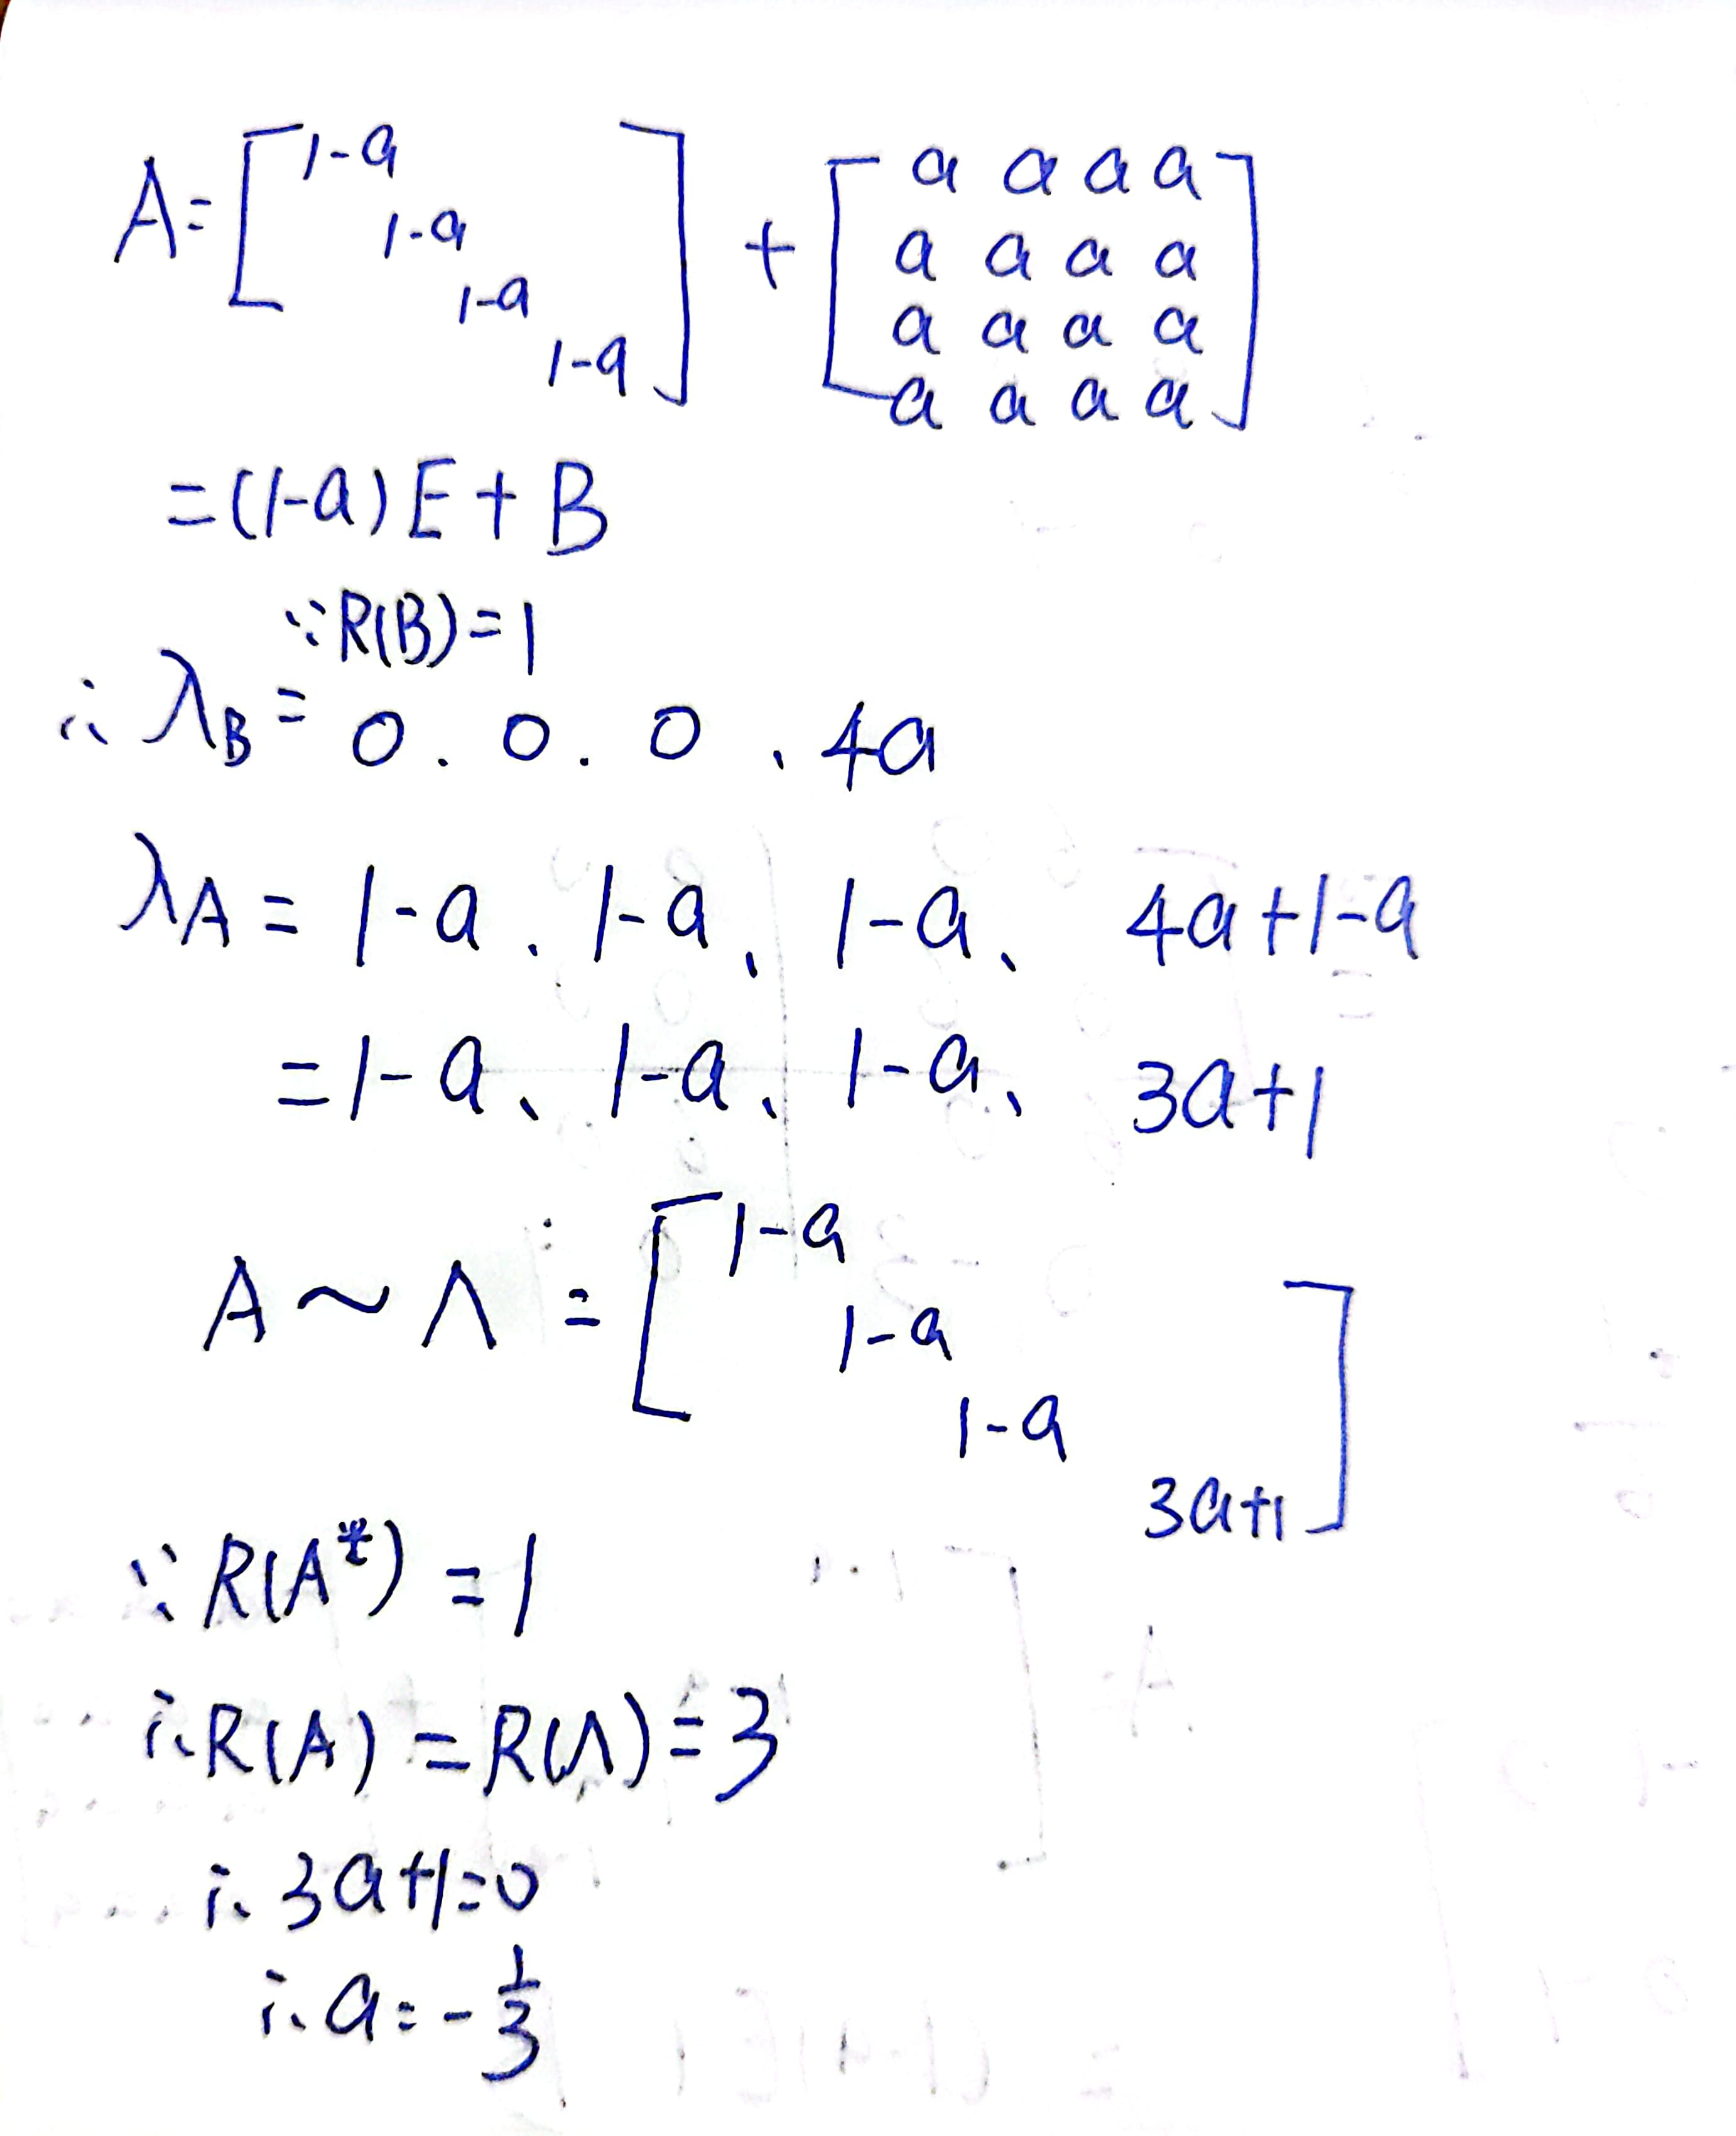 A= [ 1-a + [ a a a a ]
1-a a a a a
1-a a a a a
1-a ] a a a a
=(1-a)E+B
∵R(B)=1
∴ λB= 0. 0. 0、4a
λA = 1-a、1-a、1-a、 4a+1-a
=1-a、1-a、1-a、 3a+1
A~Λ = [ 1-a
1-a
1-a
3a+1 ]
∵R(A*)=1
∴R(A)=R(Λ)=3
∴3a+1=0
∴a=-1/3